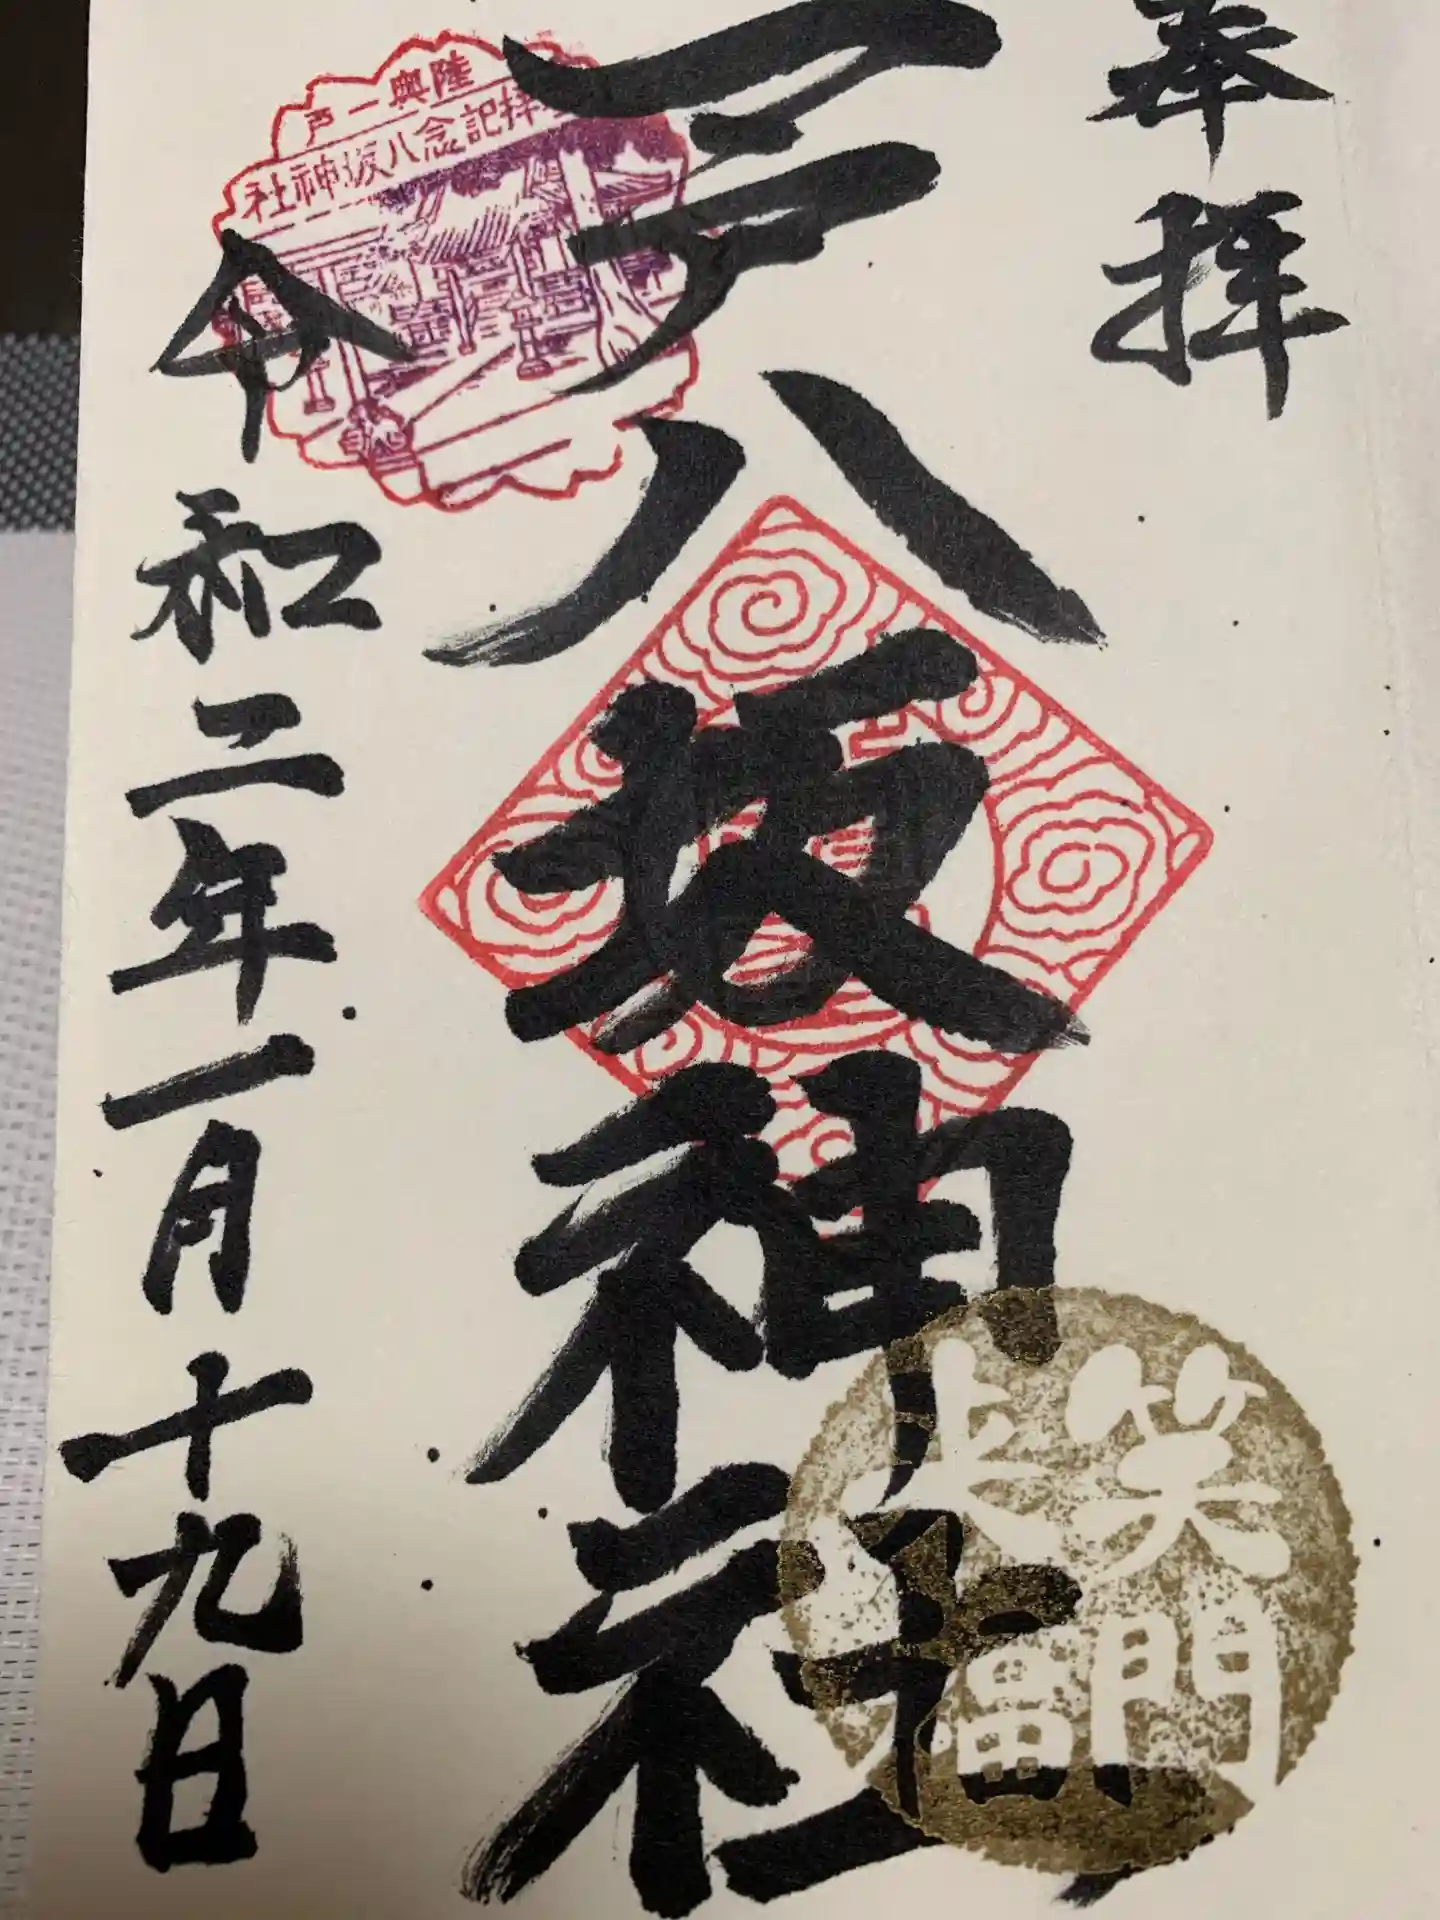 奉拝
一戸八坂神社
令和二年一月十九日
陸奥一戸
拝記念八坂神社
笑門
来福